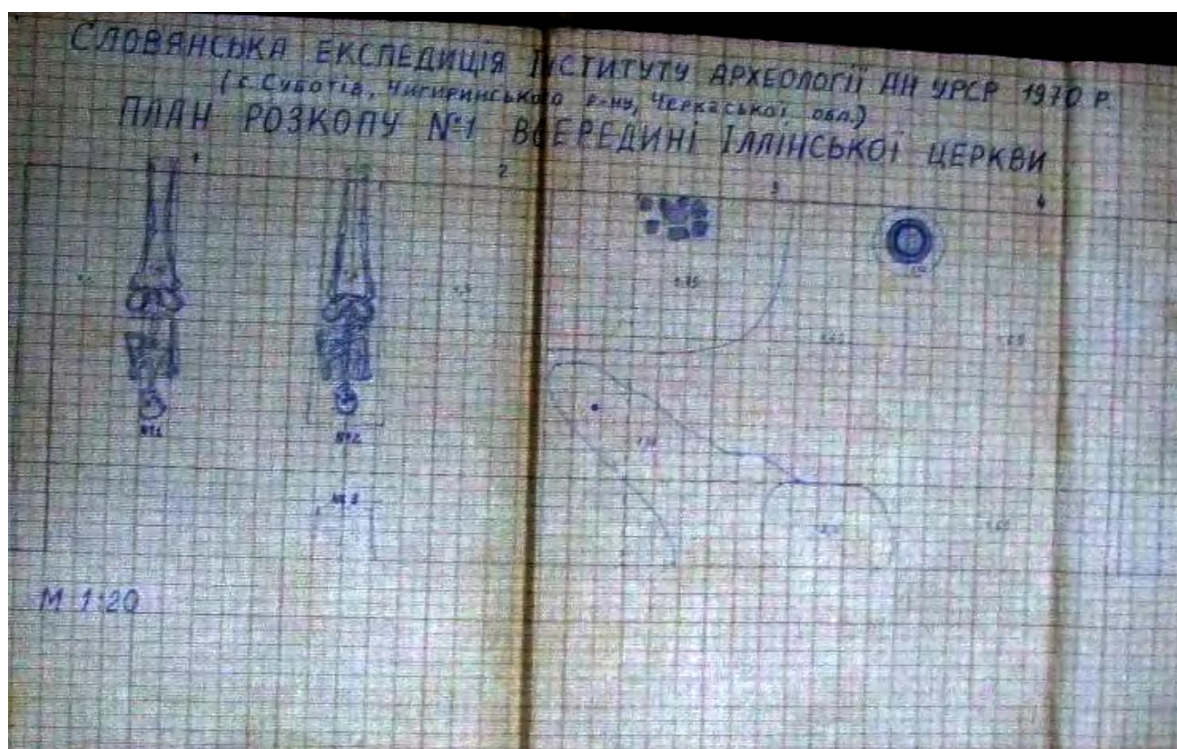 СЛОВЯНСЬКА ЕКСПЕДИЦІЯ ІНСТИТУТУ АРХЕОЛОГІЇ АН УРСР 1970 Р.
(с. Суботів, Чигиринського р-ну, Черкаської обл.)
ПЛАН РОЗКОПУ №1 ВСЕРЕДИНІ ІЛЛІНСЬКОЇ ЦЕРКВИ
1 2 3 4
№1 №2
№3
М 1:20